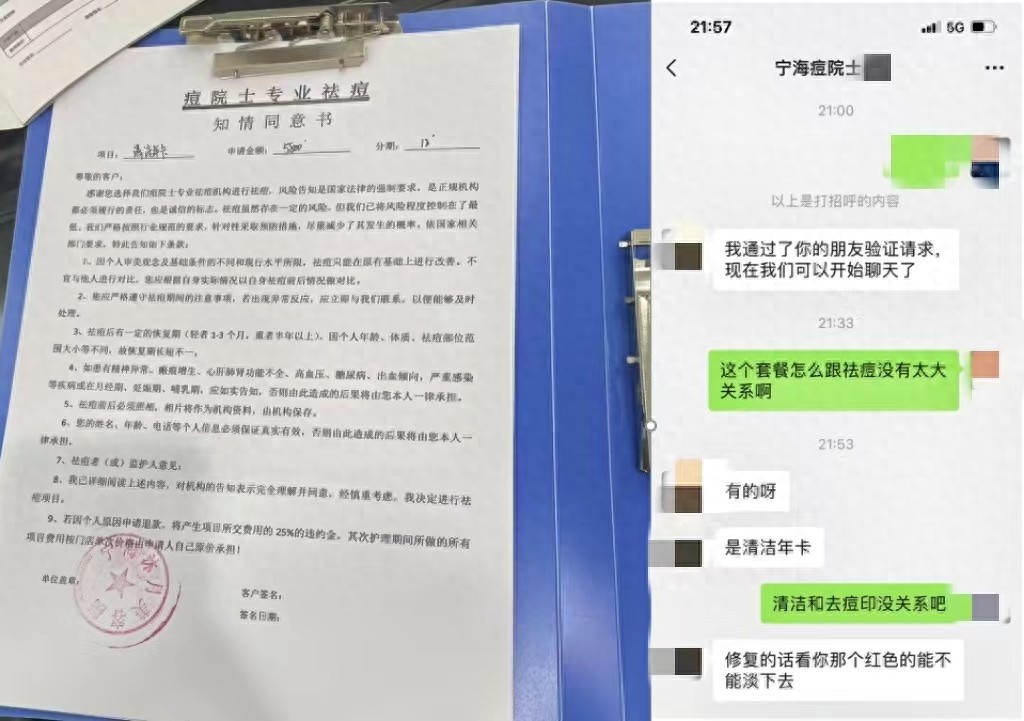 痘院士专业祛痘
知情同意书
项目：
申请金额：5800
分期：12
尊敬的客户：
感谢您选择我们痘院士专业祛痘机构进行祛痘，风险告知是国家法律的强制要求，是正规机构
都必须履行的责任，也是诚信的标志。祛痘虽然存在一定的风险，但我们已将风险程度控制在了最
低。我们严格按照行业规范的要求，针对性采取预防措施，尽量减少了其发生的概率。依国家相关
部门要求，特此告知如下条款：
1、因个人审美观念及基础条件的不同和现行水平所限，祛痘只能在原有基础上进行改善。不
宜与他人进行对比，您应根据自身实际情况以自身祛痘前后情况做对比。
2、您应严格遵守祛痘期间的注意事项，若出现异常反应，应立即与我们联系，以便能够及时
处理。
3、祛痘后有一定的恢复期（轻者1-3个月，重者半年以上）。因个人年龄、体质、祛痘部位范
围大小等不同，故恢复期长短不一。
4、如患有精神异常、瘢痕增生、心肝肺肾功能不全、高血压、糖尿病、出血倾向，严重感染
等疾病或在月经期、妊娠期、哺乳期，应如实告知，否则由此造成的后果将由您本人一律承担。
5、祛痘前后必须照相，相片将作为机构资料，由机构保存。
6、您的姓名、年龄、电话等个人信息必须保证真实有效，否则由此造成的后果将由您本人一
律承担。
7、祛痘者（或）监护人意见：
8、我已详细阅读上述内容，对机构的告知表示完全理解并同意，经慎重考虑，我决定进行祛
痘项目。
9、若因个人原因申请退款，将产生项目所交费用的25%的违约金，其次护理期间所做的所有
项目费用按门店单次价格由申请人自己原价承担！
单位盖章：
客户签名：
签名日期：
21:57
5G
宁海痘院士
21:00
以上是打招呼的内容
我通过了你的朋友验证请求，
现在我们可以开始聊天了
21:33
这个套餐怎么跟祛痘没有太大
关系啊
21:53
有的呀
是清洁年卡
清洁和去痘印没关系吧
修复的话看你那个红色的能不
能淡下去